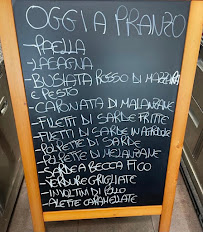 OGGI A PRANZO
- PAELLA
- LASAGNA
- BUSIATA ROSSO DI MAZZARA
E PESTO
- CAPONATA DI MELANZANE
- FILETTI DI SARDE FRITTE
- FILETTI DI SARDE IN AGRODOLCE
- POLPETTE DI SARDE
- POLPETTE DI MELANZANE
- SARDE A BECCA FICO
- VERDURE GRIGLIATE
- INVOLTINI DI POLLO
- ALETTE CARAMELLATE